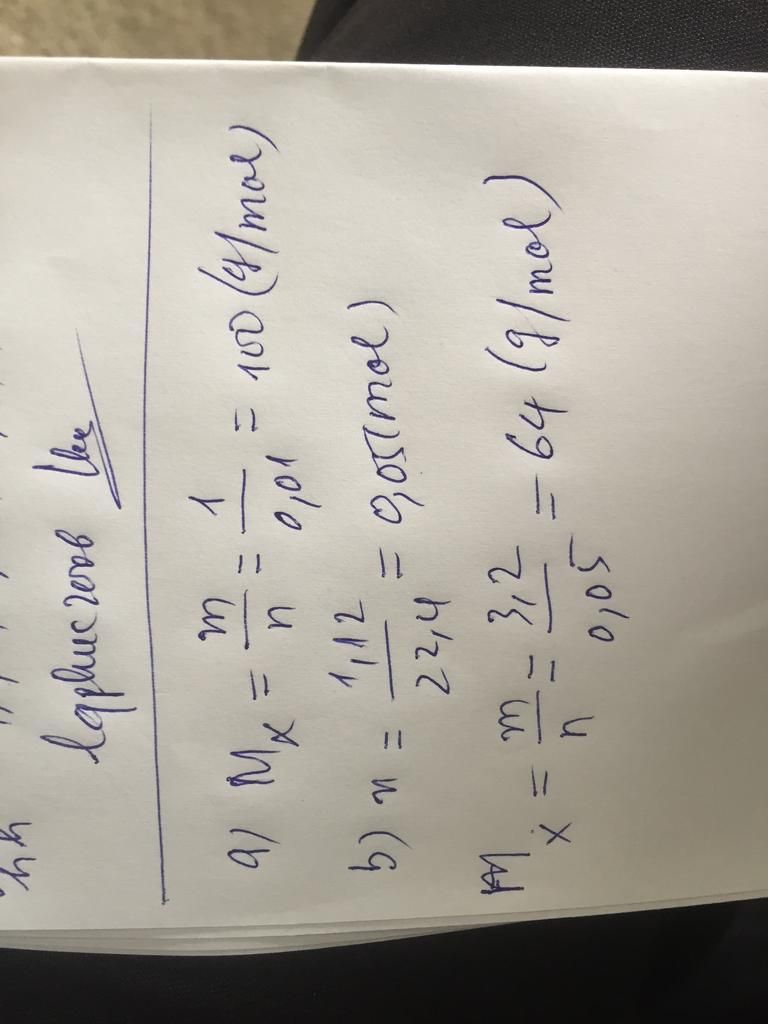 a) Mₓ = m/n = 1/0,01 = 100 (g/mol)
b) n = 1,12/22,4 = 0,05 (mol)
Mₓ = m/n = 3,2/0,05 = 64 (g/mol)